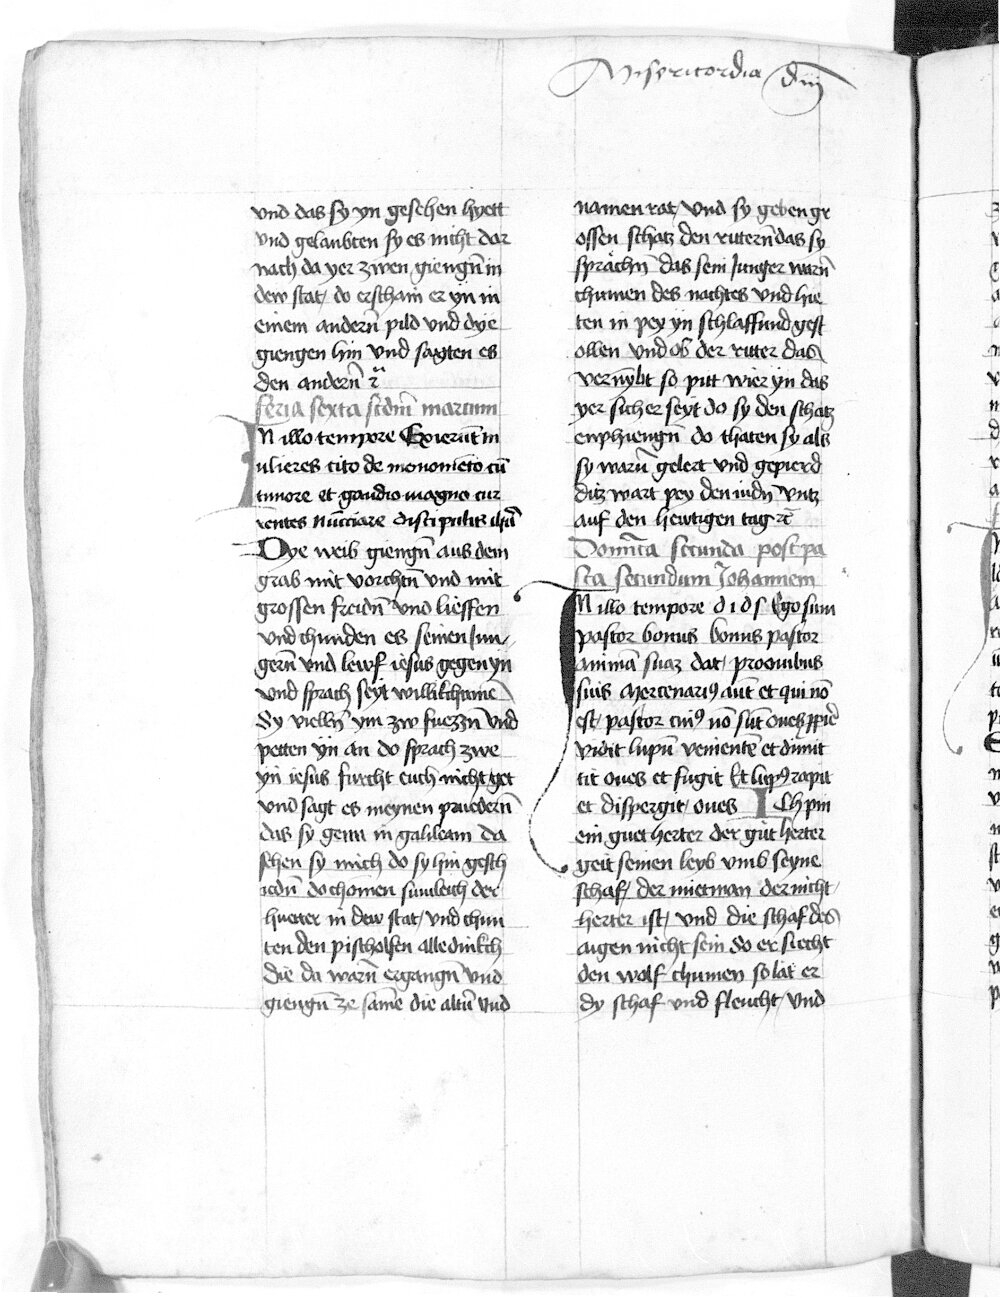 Misericordia dn̄i
vnd das sy yn gesehen hyett
vnd gelaubten sy es nicht dar
nach da yer zwen giengn̄ in
dew stat / do erschain er yn in
einem andern̄ pild vnd dye
giengen hin vnd sagten es
den andern̄ rͣ
feria sexta scd̄m marcum
IN illo tempore Exierūt m
ulieres cito de monomēto cū
timore et gaudio magno cur
rentes nūcciare discipulis ihū
Dye weib giengn̄ aus dem
grab mit vorchtn̄ vnd mit
grossen freidn̄ vnd lieffen
vnd chunden es seinen Jun /
gern̄ vnd lewf iesus gegen yn
vnd sprach seyt willikchamē
Sy vielln̄ ym zw fuezzn̄ vnd
petten yn an do sprach zwe
yn iesus furcht euch nicht get
vnd sagt es meynen pruedern̄
das sy genn in galileam da
sehen sy mich do sy hin gesch
iedn̄ do chomen sumleich der
hueter in dew stat / vnd chun
ten den pischolfen alle dinkch
die da warn̄ ergangn̄ vnd
giengn̄ ze samē die altn̄ vnd
namen rat / vnd sy geben gr
ossen schatz den rittern̄ das sy
sprachn̄ das sein Junger warn̄
chumen des nachtes vnd hie
ten in pey yn schlaffund gest
ollen vnd ob der ritter das
vernȳbt so pitt wier yn das
yer sicher seyt do sy den schatz
enphiengn̄ do thaten sy als
sy warn̄ gelert vnd gepierd
ditz wart pey den iudn̄ vntz
auf den hewtigen tag rc̄
Domīca secunda post pa
sca secundum Johannem
IN illo tempore d i d s Ego sum
pastor bonus bonus pastor
animā suaz dat / pro ouibus
suis Mercenariꝰ aut et qui nō
est / pastor cuiꝰ nō sūt oues ꝓpie
vidit lupū venientē et dimit
tit oues et fugit Et lupꝰ rapit
et dispergit / oues Ich pin
ein guet herter der gut herter
geit seinen leyb vmb seyne
schaf / der mietman der nicht
herter ist / vnd die schaf des
aigen nicht sein So er siecht
den wolf chumen so lat er
dy schaf vnd fleucht / vnd